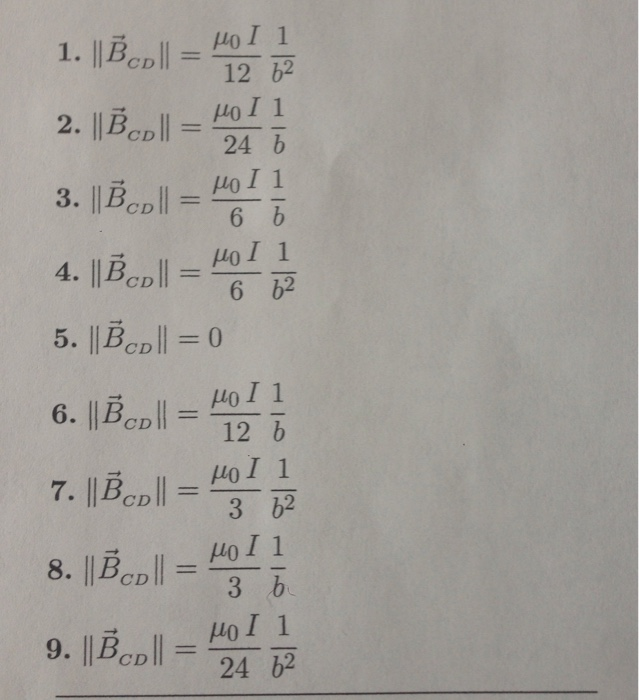 1. ‖B⃗_CD‖ = μ₀ I / 12 1 / b²
2. ‖B⃗_CD‖ = μ₀ I / 24 1 / b
3. ‖B⃗_CD‖ = μ₀ I / 6 1 / b
4. ‖B⃗_CD‖ = μ₀ I / 6 1 / b²
5. ‖B⃗_CD‖ = 0
6. ‖B⃗_CD‖ = μ₀ I / 12 1 / b
7. ‖B⃗_CD‖ = μ₀ I / 3 1 / b²
8. ‖B⃗_CD‖ = μ₀ I / 3 1 / b
9. ‖B⃗_CD‖ = μ₀ I / 24 1 / b²